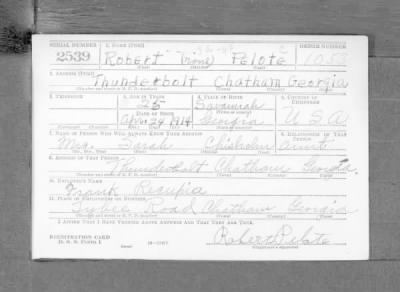 SERIAL NUMBER 1. NAME (Print) ORDER NUMBER
2539 Robert Irone Pelote 1053
(First) (Middle) (Last)
2. ADDRESS (Print)
Thunderbolt Chatham Georgia
3. TELEPHONE 4. AGE IN YEARS 5. PLACE OF BIRTH 6. COUNTRY OF CITIZENSHIP
25 Savannah
DATE OF BIRTH
Apr. 24 1914 Georgia U S A
7. NAME OF PERSON WHO WILL ALWAYS KNOW YOUR ADDRESS 8. RELATIONSHIP OF THAT PERSON
Mrs. Sarah Chisholm aunt
9. ADDRESS OF THAT PERSON
Thunderbolt Chatham Georgia
10. EMPLOYER'S NAME
Frank Recupia
11. PLACE OF EMPLOYMENT OR BUSINESS
Tybee Road Chatham Georgia
I AFFIRM THAT I HAVE VERIFIED ABOVE ANSWERS AND THAT THEY ARE TRUE.
REGISTRATION CARD
D. S. S. FORM 1
Robert Pelote